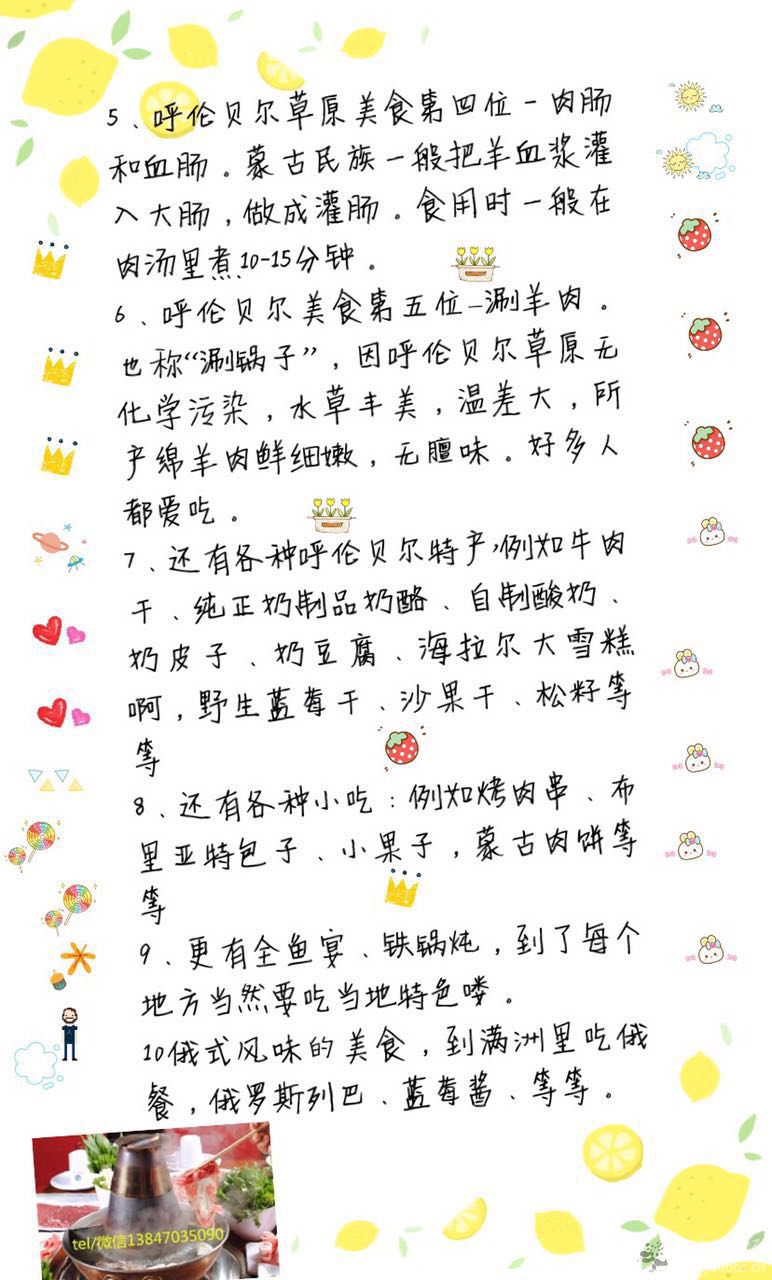 5、呼伦贝尔草原美食第四位-肉肠
和血肠。蒙古民族一般把羊血浆灌
入大肠，做成灌肠。食用时一般在
肉汤里煮10-15分钟。
6、呼伦贝尔美食第五位_涮羊肉。
也称“涮锅子”，因呼伦贝尔草原无
化学污染，水草丰美，温差大，所
产绵羊肉鲜细嫩，无膻味。好多人
都爱吃。
7、还有各种呼伦贝尔特产,例如牛肉
干、纯正奶制品奶酪、自制酸奶、
奶皮子、奶豆腐、海拉尔大雪糕
啊，野生蓝莓干、沙果干、松籽等
等
8、还有各种小吃：例如烤肉串、布
里亚特包子、小果子，蒙古肉饼等
等
9、更有全鱼宴、铁锅炖，到了每个
地方当然要吃当地特色喽。
10俄式风味的美食，到满洲里吃俄
餐，俄罗斯列巴、蓝莓酱、等等。
tel/微信13847035090